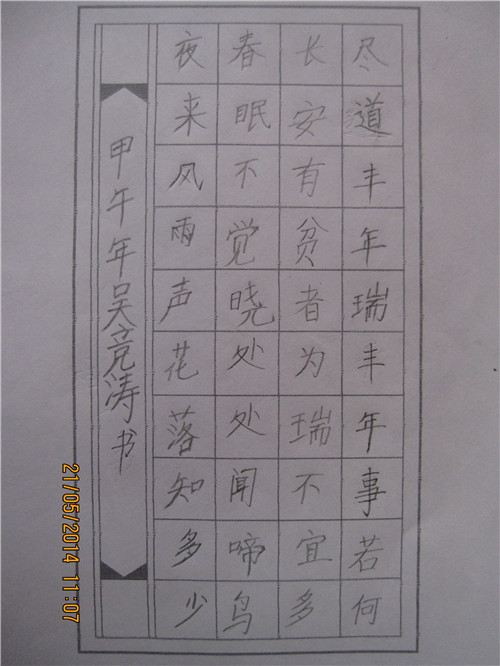 尽道丰年瑞丰年事若何
长安有贫者为瑞不宜多
春眠不觉晓处处闻啼鸟
夜来风雨声花落知多少
甲午年吴竞涛书
21/05/2014 11:07